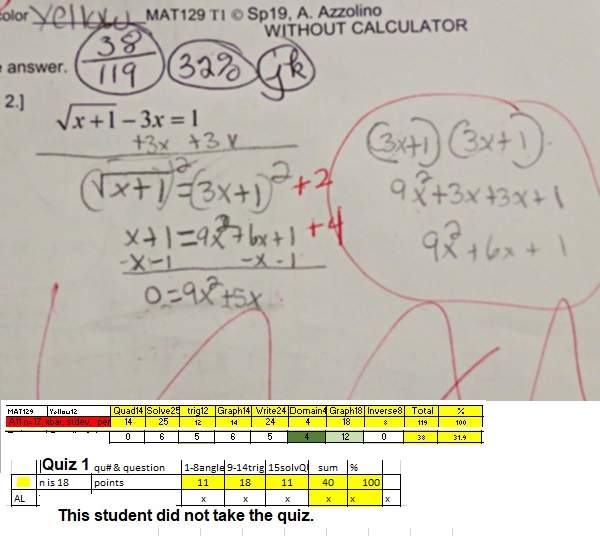 color yellow MAT129 T1 © Sp19, A. Azzolino
WITHOUT CALCULATOR
answer. 38/119 32%
2.] √x+1 − 3x = 1
+3x +3x
(√x+1)² = (3x+1)² +2
x+1 = 9x²+6x+1 +4
-x-1 -x-1
0 = 9x²+5x
(3x+1)(3x+1)
9x²+3x+3x+1
9x²+6x+1
MAT129 Yellow12 Quad14 Solve25 trig12 Graph14 Write24 Domain4 Graph18 Inverse8 Total %
14 25 12 14 24 4 18 8 119 100
0 6 5 6 5 4 12 0 38 31.9
Quiz 1 qu# & question 1-8angle 9-14trig 15solvQ sum %
n is 18 points 11 18 11 40 100
AL x x x x x x
This student did not take the quiz.